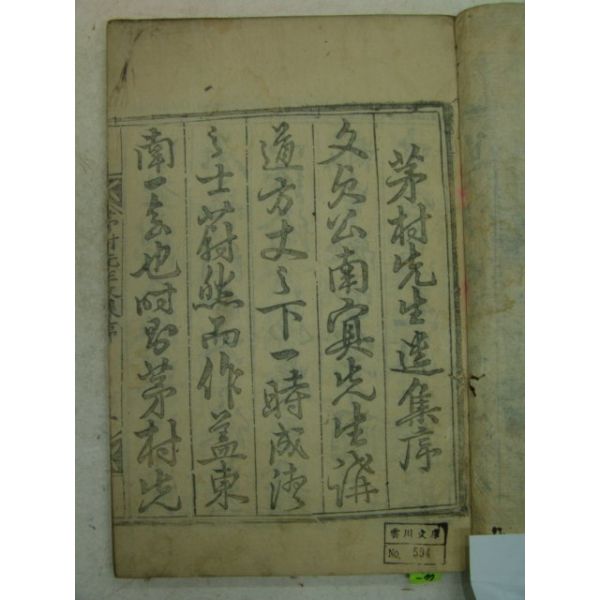 茅村先生遺集序
文貞公南冥先生講
道方丈之下一時成德
之士蔚然而作盖東
南一會也時則茅村先
雲川文庫
No. 594